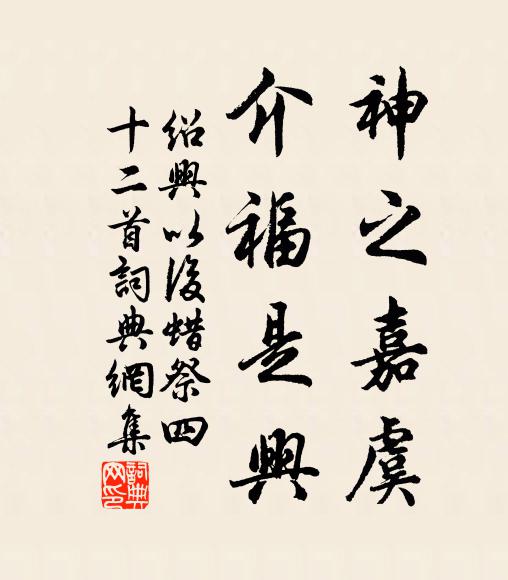 神之嘉虞
介福是興
紹興以後蜡祭四
十二首詞典網集
詞典網印